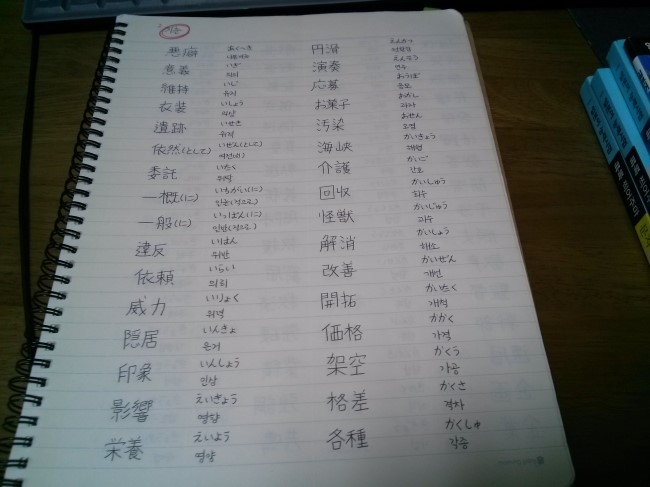 悪癖 あくへき
나쁜버릇
意義 いぎ
의의
維持 いじ
유지
衣装 いしょう
의상
遺跡 いせき
유적
依然(として) いぜん(として)
여전(히)
委託 いたく
위탁
一概(に) いちがい(に)
일률(적으로)
一般(に) いっぱん(に)
일반(적으로)
違反 いはん
위반
依頼 いらい
의뢰
威力 いりょく
위력
隠居 いんきょ
은거
印象 いんしょう
인상
影響 えいきょう
영향
栄養 えいよう
영양
円滑 えんかつ
演奏 えんそう
연주
応募 おうぼ
응모
お菓子 おかし
과자
汚染 おせん
오염
海峡 かいきょう
해협
介護 かいご
간호
回収 かいしゅう
회수
怪獣 かいじゅう
괴수
解消 かいしょう
해소
改善 かいぜん
개선
開拓 かいたく
개척
価格 かかく
가격
架空 かくう
가공
格差 かくさ
격차
各種 かくしゅ
각종